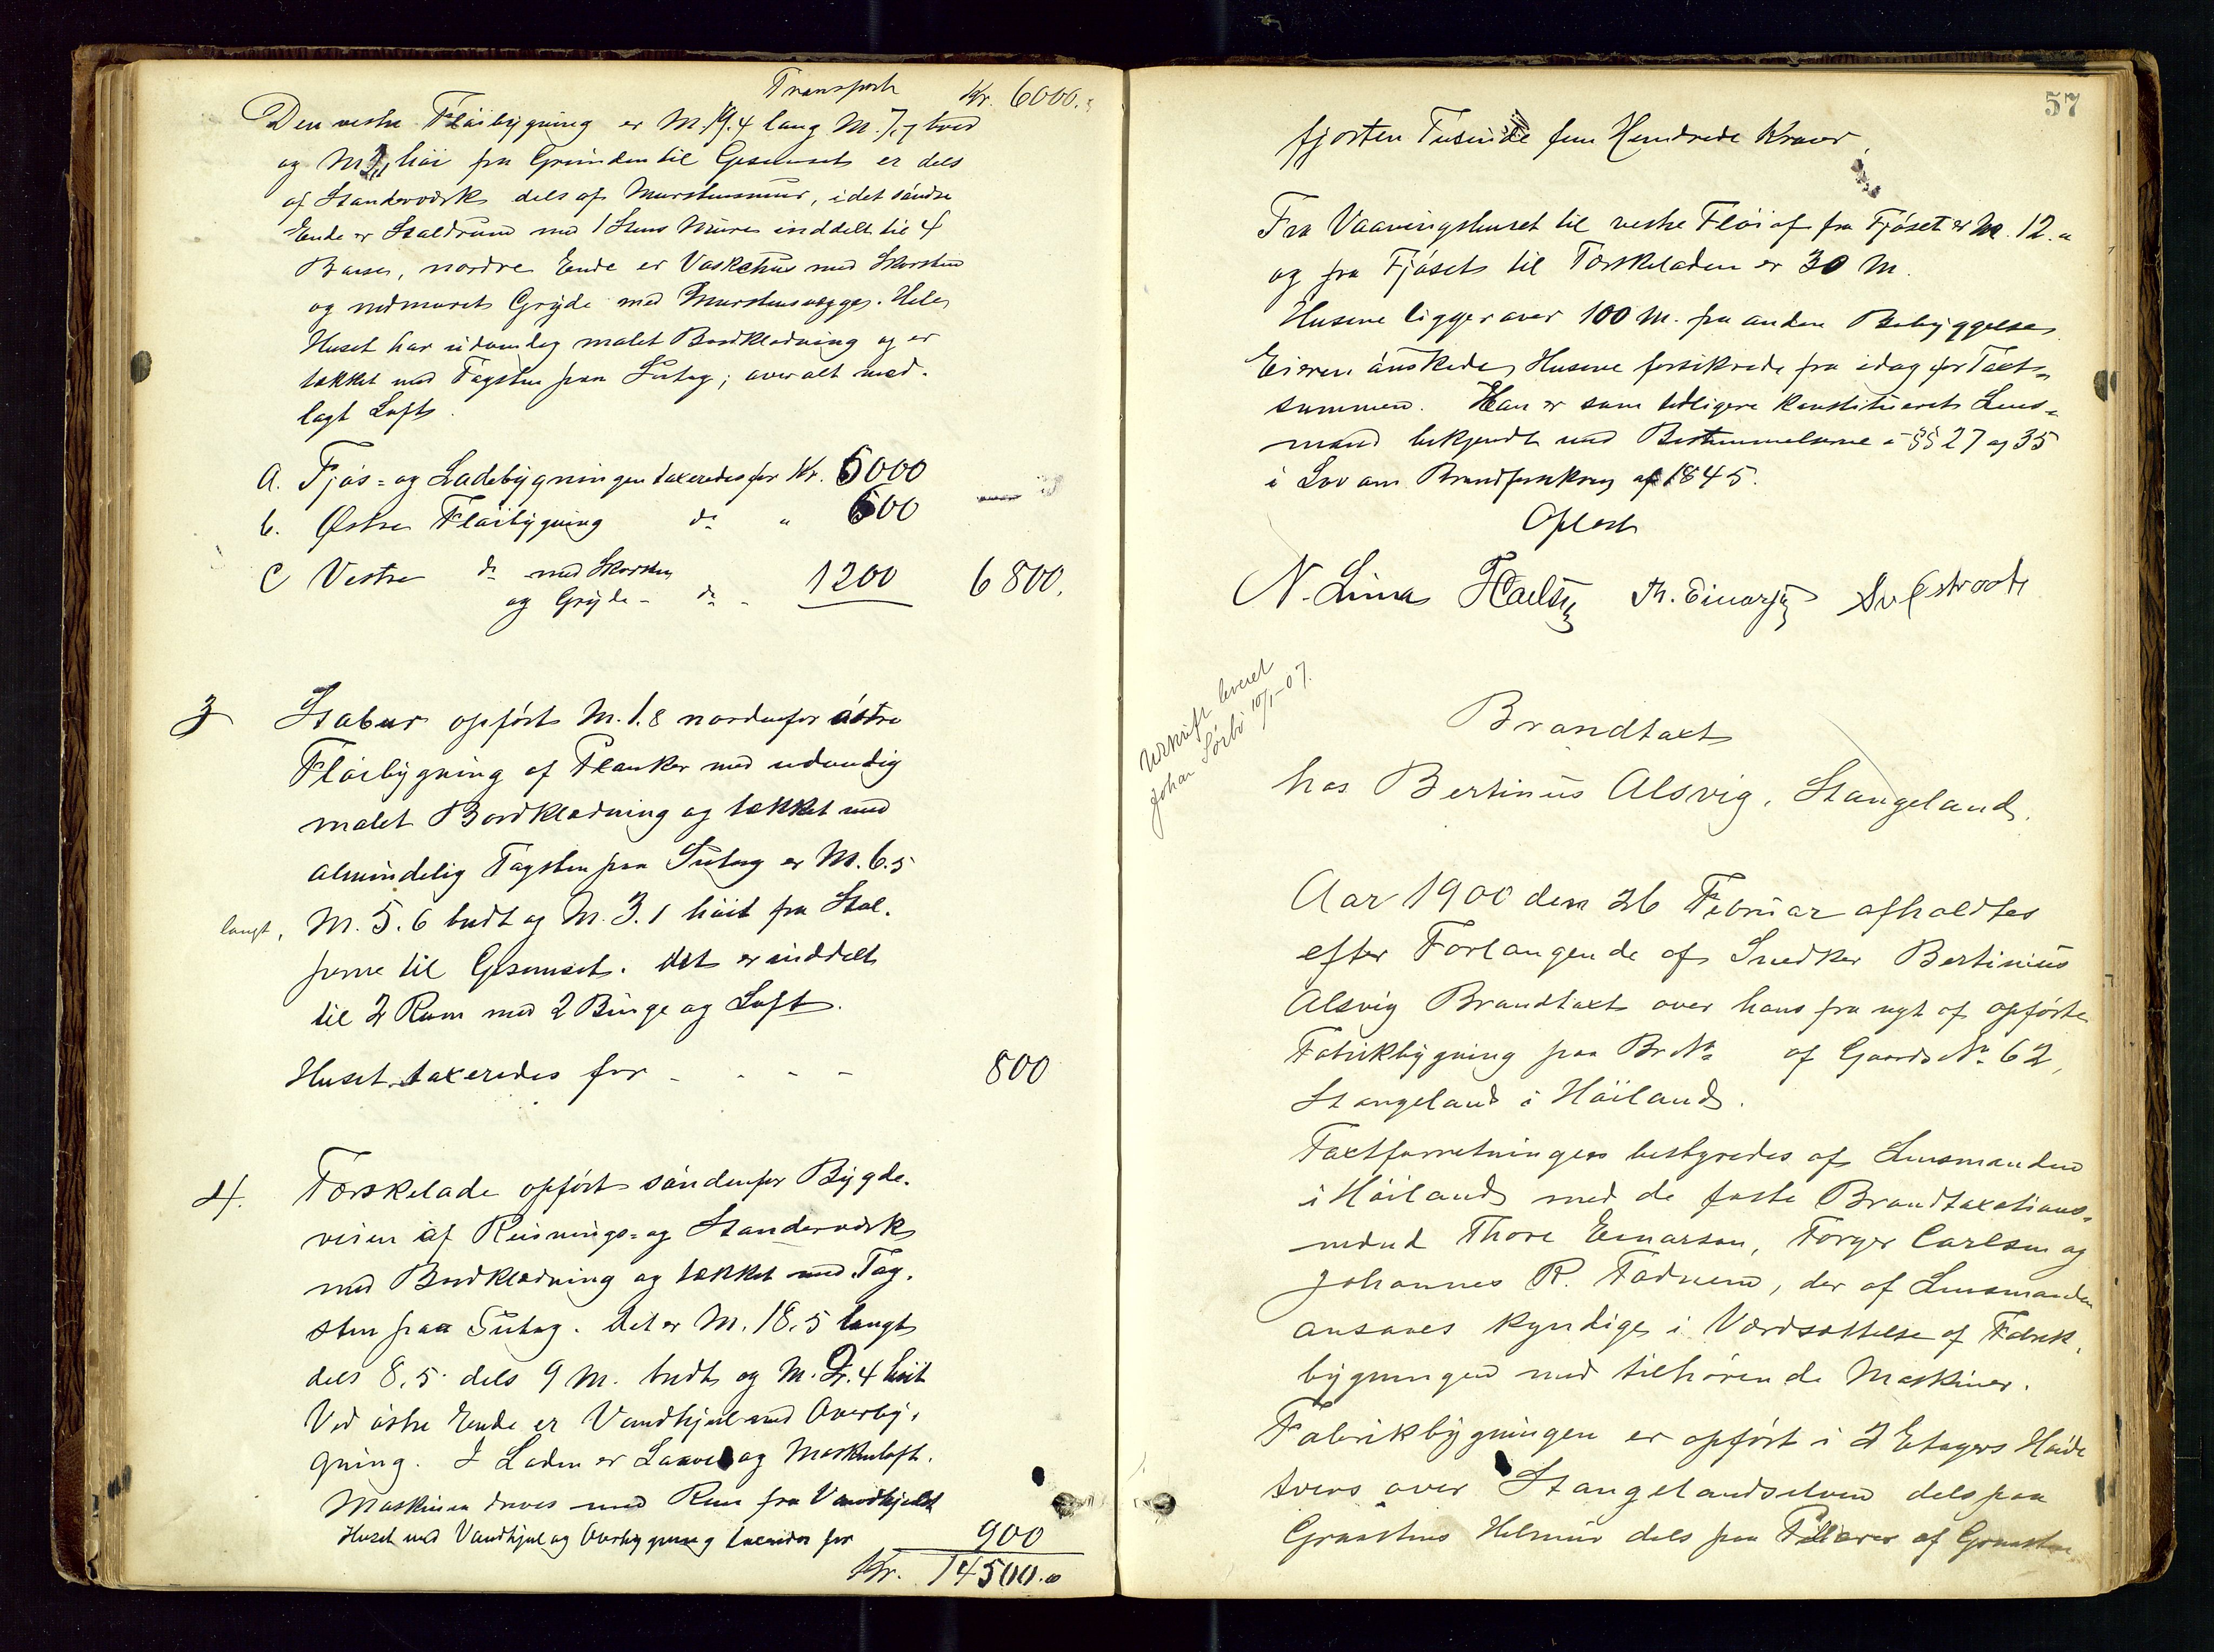 Transport Kr. 6000.
Den vestre Flöibygning er M. 19.4 lang M. 7.7 bred
og M. höi fra Grunden til Gesemset er dels
af Standerværk dels af Murstensmur, i det söndre
Ende er Staldrum med 1 Stens Mure inddelt til 4
Baase, nordre Ende er Vaskehus med Skorsten
og nedmuret Gryde med Murstensvægge. Hele
Huset har udvendig malet Bordklædning og er
tækket med Tagsten paa Sutag; overalt med-
lagt Loft.
a. Fjös- og Ladebygningen taxeredes for Kr. 5000
b. Østre Flöibygning do " 600
c Vestre do med Skorsten
og Gryde - do - 1200 6800.
3 Stabur opfört M. 1.8 nordenfor östre
Flöibygning af Planker med udvendig
malet Bordklædning og tækket med
almindelig Tagsten paa Sutag er M. 6.5
langt, M. 5.6 bredt og M. 3.1 höit fra Stol-
perne til Gesemset. Det er inddelt
til 2 Rum med 2 Binge og Loft.
Huset taxeredes for - - - - 800
4. Tærskelade opfört söndenfor Bygde-
veien af Reisnings- og Standerværk
med Bordklædning og tækket med Tag-
sten paa Sutag. Det er M. 18.5 langt
dels 8.5 dels 9 M. bredt og M. 2.4 höit
Ved östre Ende er Vandhjul med Overbyg-
gning. I Laden er Laave og Maskinloft.
Maskinen drives med Rem fra Vandhjulet
Huset med Vandhjul og Overbygning taxeredes for 900
Kr. 14500.00
57
fjorten Tusinde fem Hundrede Kroner.
Fra Vaaningshuset til vestre Flöi af fra Fjöset er M. 12.
og fra Fjöset til Tærskeladen er 30 M.
Husene ligger over 100 M. fra anden Bebyggelse
Eieren önskede Husene forsikrede fra idag for Taxt-
summen. Han er som tidligere konstitueret Lens-
mand bekjendt med Bestemmelserne i §§ 27 og 35
i Lov om Brandforsikring af 1845.
Oplæst
N. Lima T Carlsen Th. Einarsen
Udskrift leveret
Johan Sörbö 10/1-07.
Brandtaxt
hos Bertinius Alsvig, Stangeland.
Aar 1900 den 26 Februar afholdtes
efter Forlangende af Snedker Bertinius
Alsvig Brandtaxt over hans fra nyt af opförte
Fabrikbygning paa Br No af Gaards No 62,
Stangeland i Höiland.
Taxtforretningen bestyredes af Lensmanden
i Höiland med de faste Brandtaxations-
mænd Thore Einarsen, Torger Carlsen og
Johannes R. Fadnem, der af Lensmanden
ansaaes kyndige i Værdsættelse af Fabrik-
bygningen med tilhörende Maskiner.
Fabrikbygningen er opfört i 2 Etagers Höide
tvers over Stangelandselven dels paa
Graastens Helmur dels paa Pillarer af Graasten